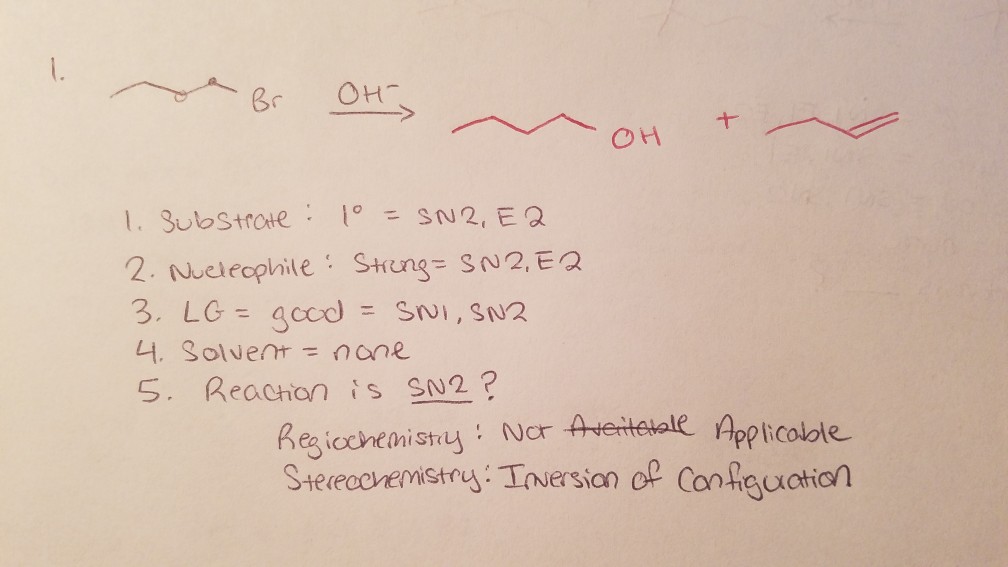 1.
Br OH⁻ OH +
1. Substrate : 1° = SN2, E2
2. Nucleophile : Strong = SN2, E2
3. LG = good = SN1, SN2
4. Solvent = none
5. Reaction is SN2 ?
Regiochemistry : Not Availabable Applicable
Stereochemistry : Inversion of Configuration